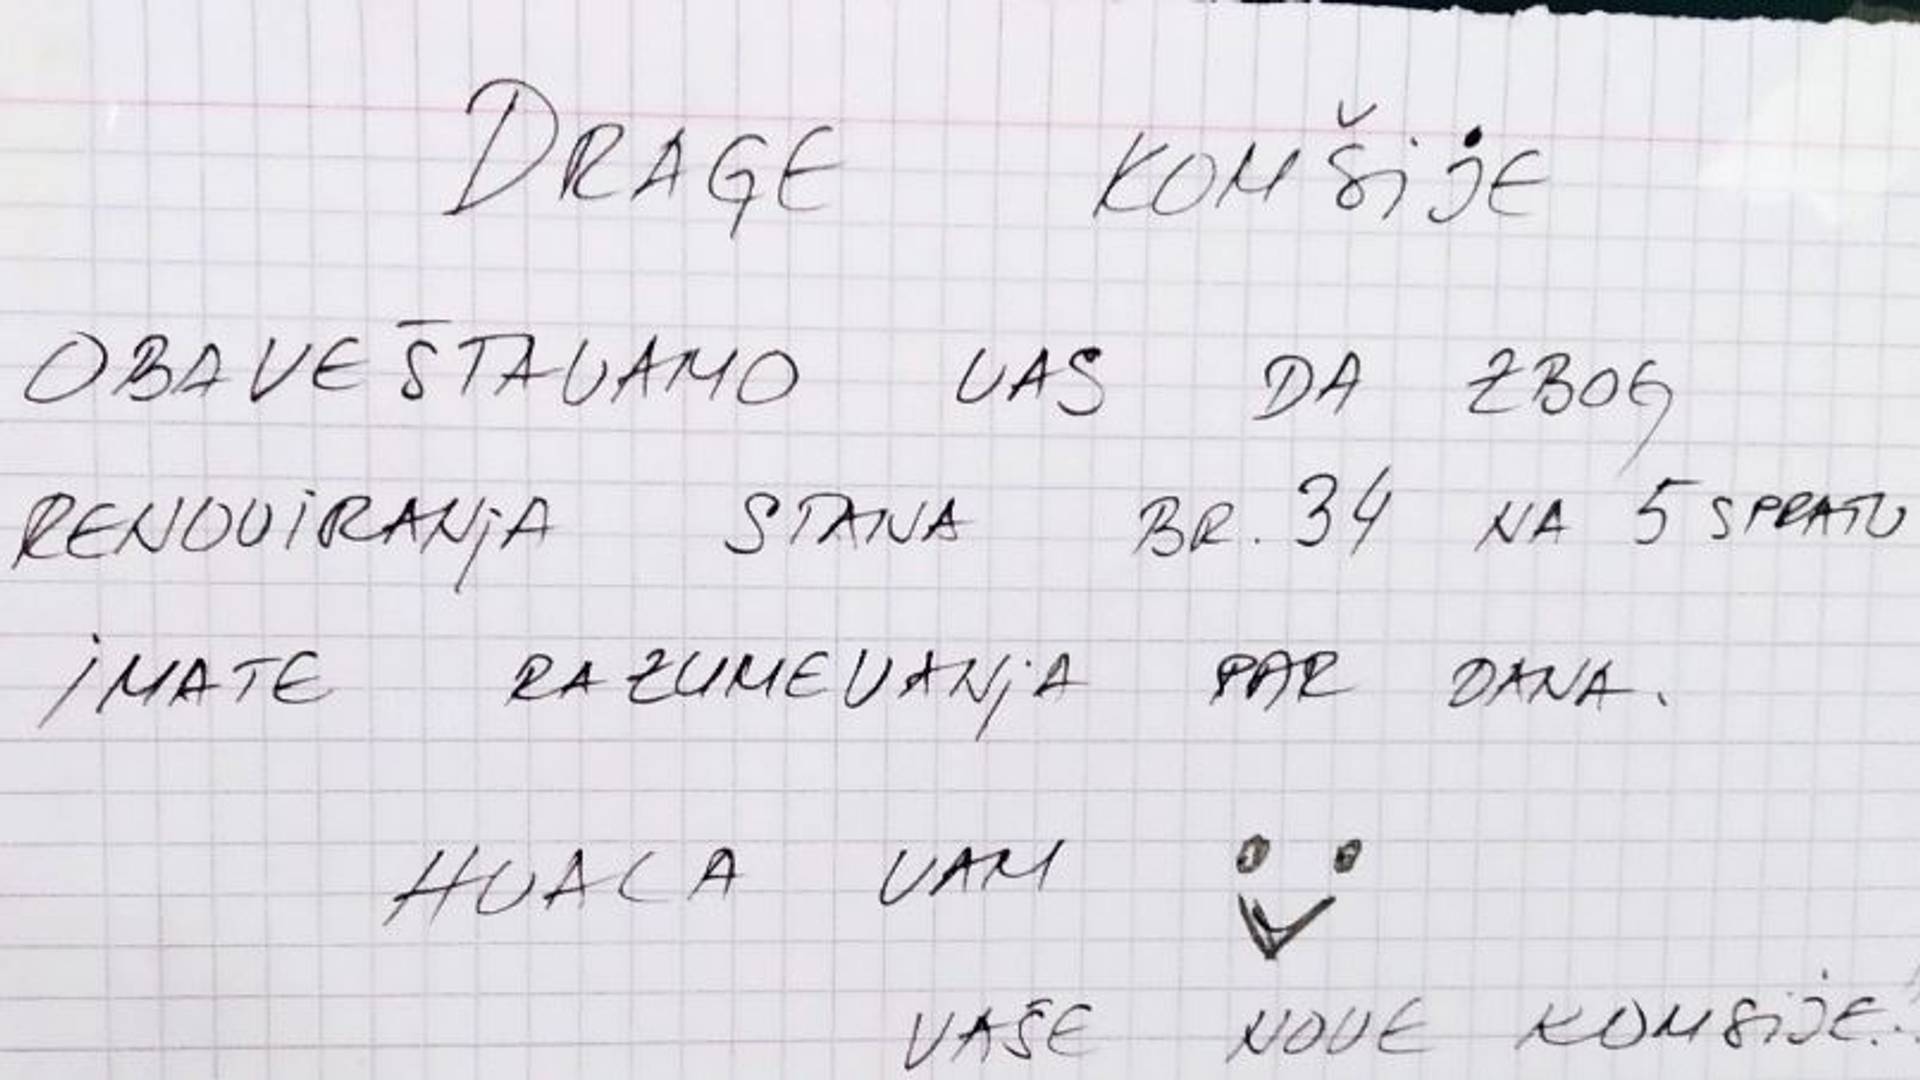 DRAGE KOMŠiJE
OBAVEŠTAVAMO VAS DA ZBOG
RENOViRANjA STANA BR. 34 NA 5 SPRATU
iMATE RAZUMEVANjA PAR DANA.
HVALA VAM
VAŠE NOVE KOMŠiJE!